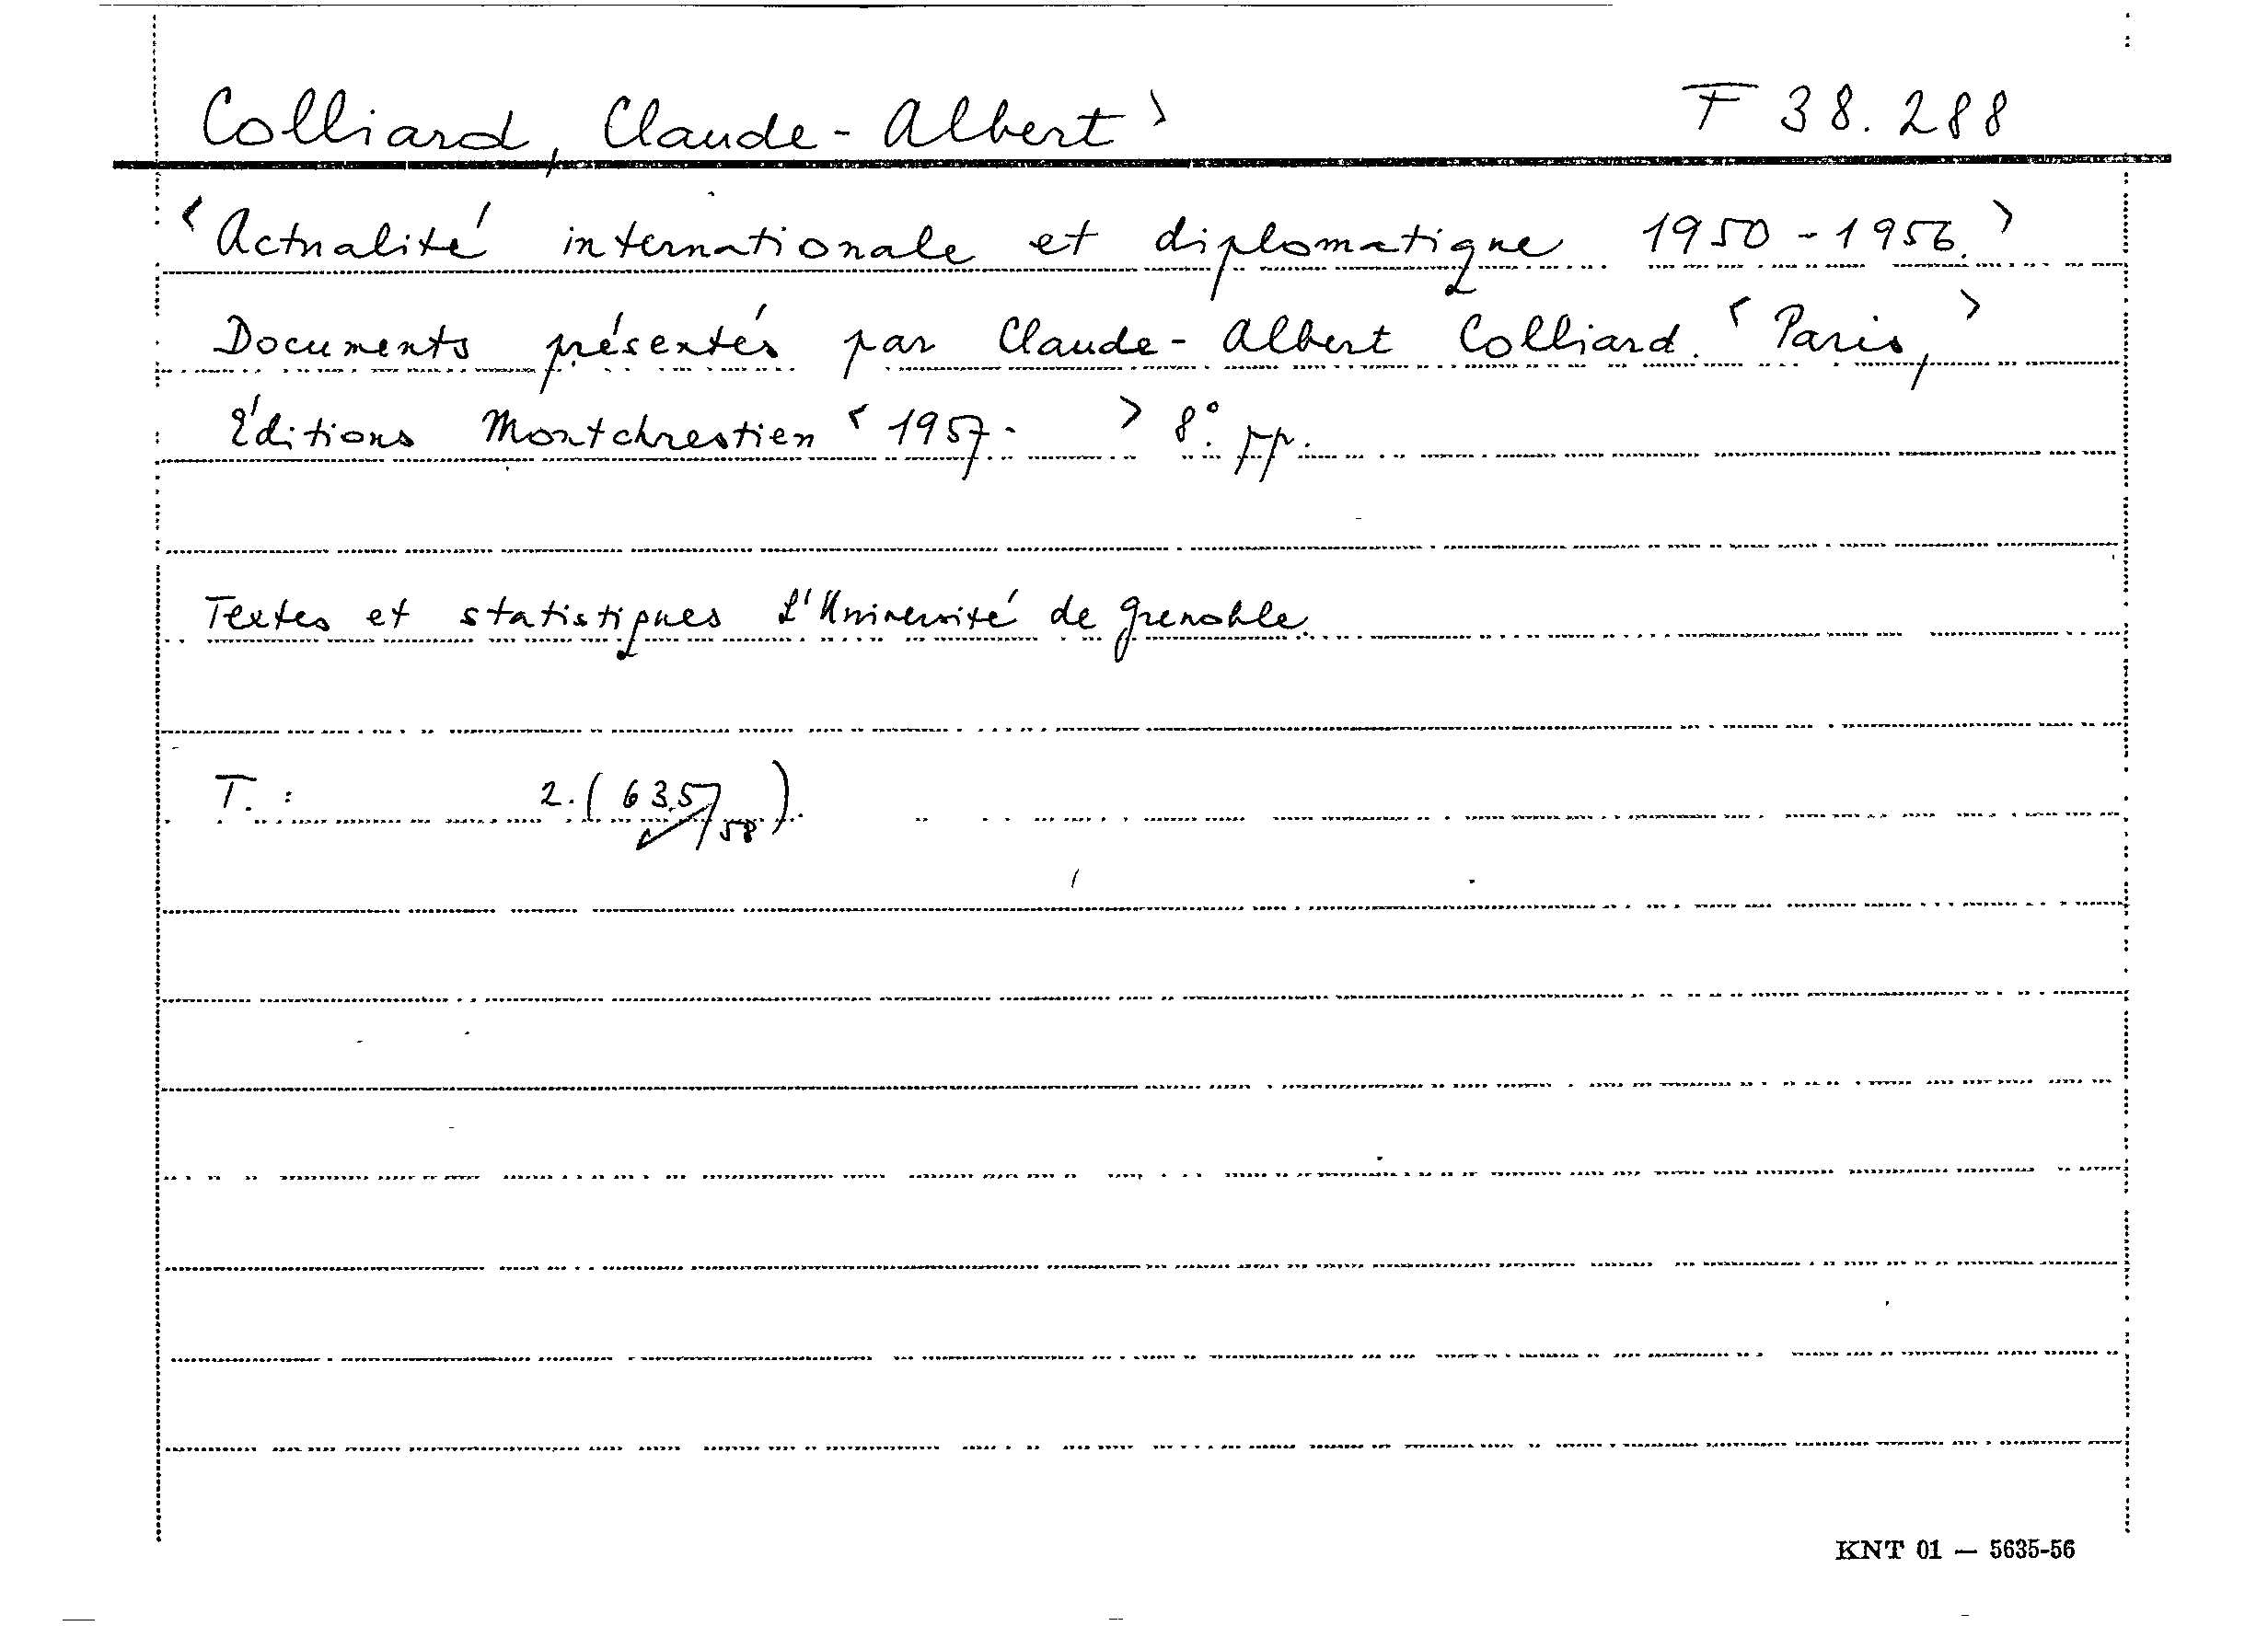 Colliard, Claude-Albert> F 38.288
<Actualité internationale et diplomatique 1950-1956.>
Documents présentés par Claude-Albert Colliard. <Paris,>
Éditions Montchrestien <1957- > 8°. pp.
Textes et statistiques L'Université de Grenoble.
T. : 2. (635/58).
KNT 01 — 5635-56